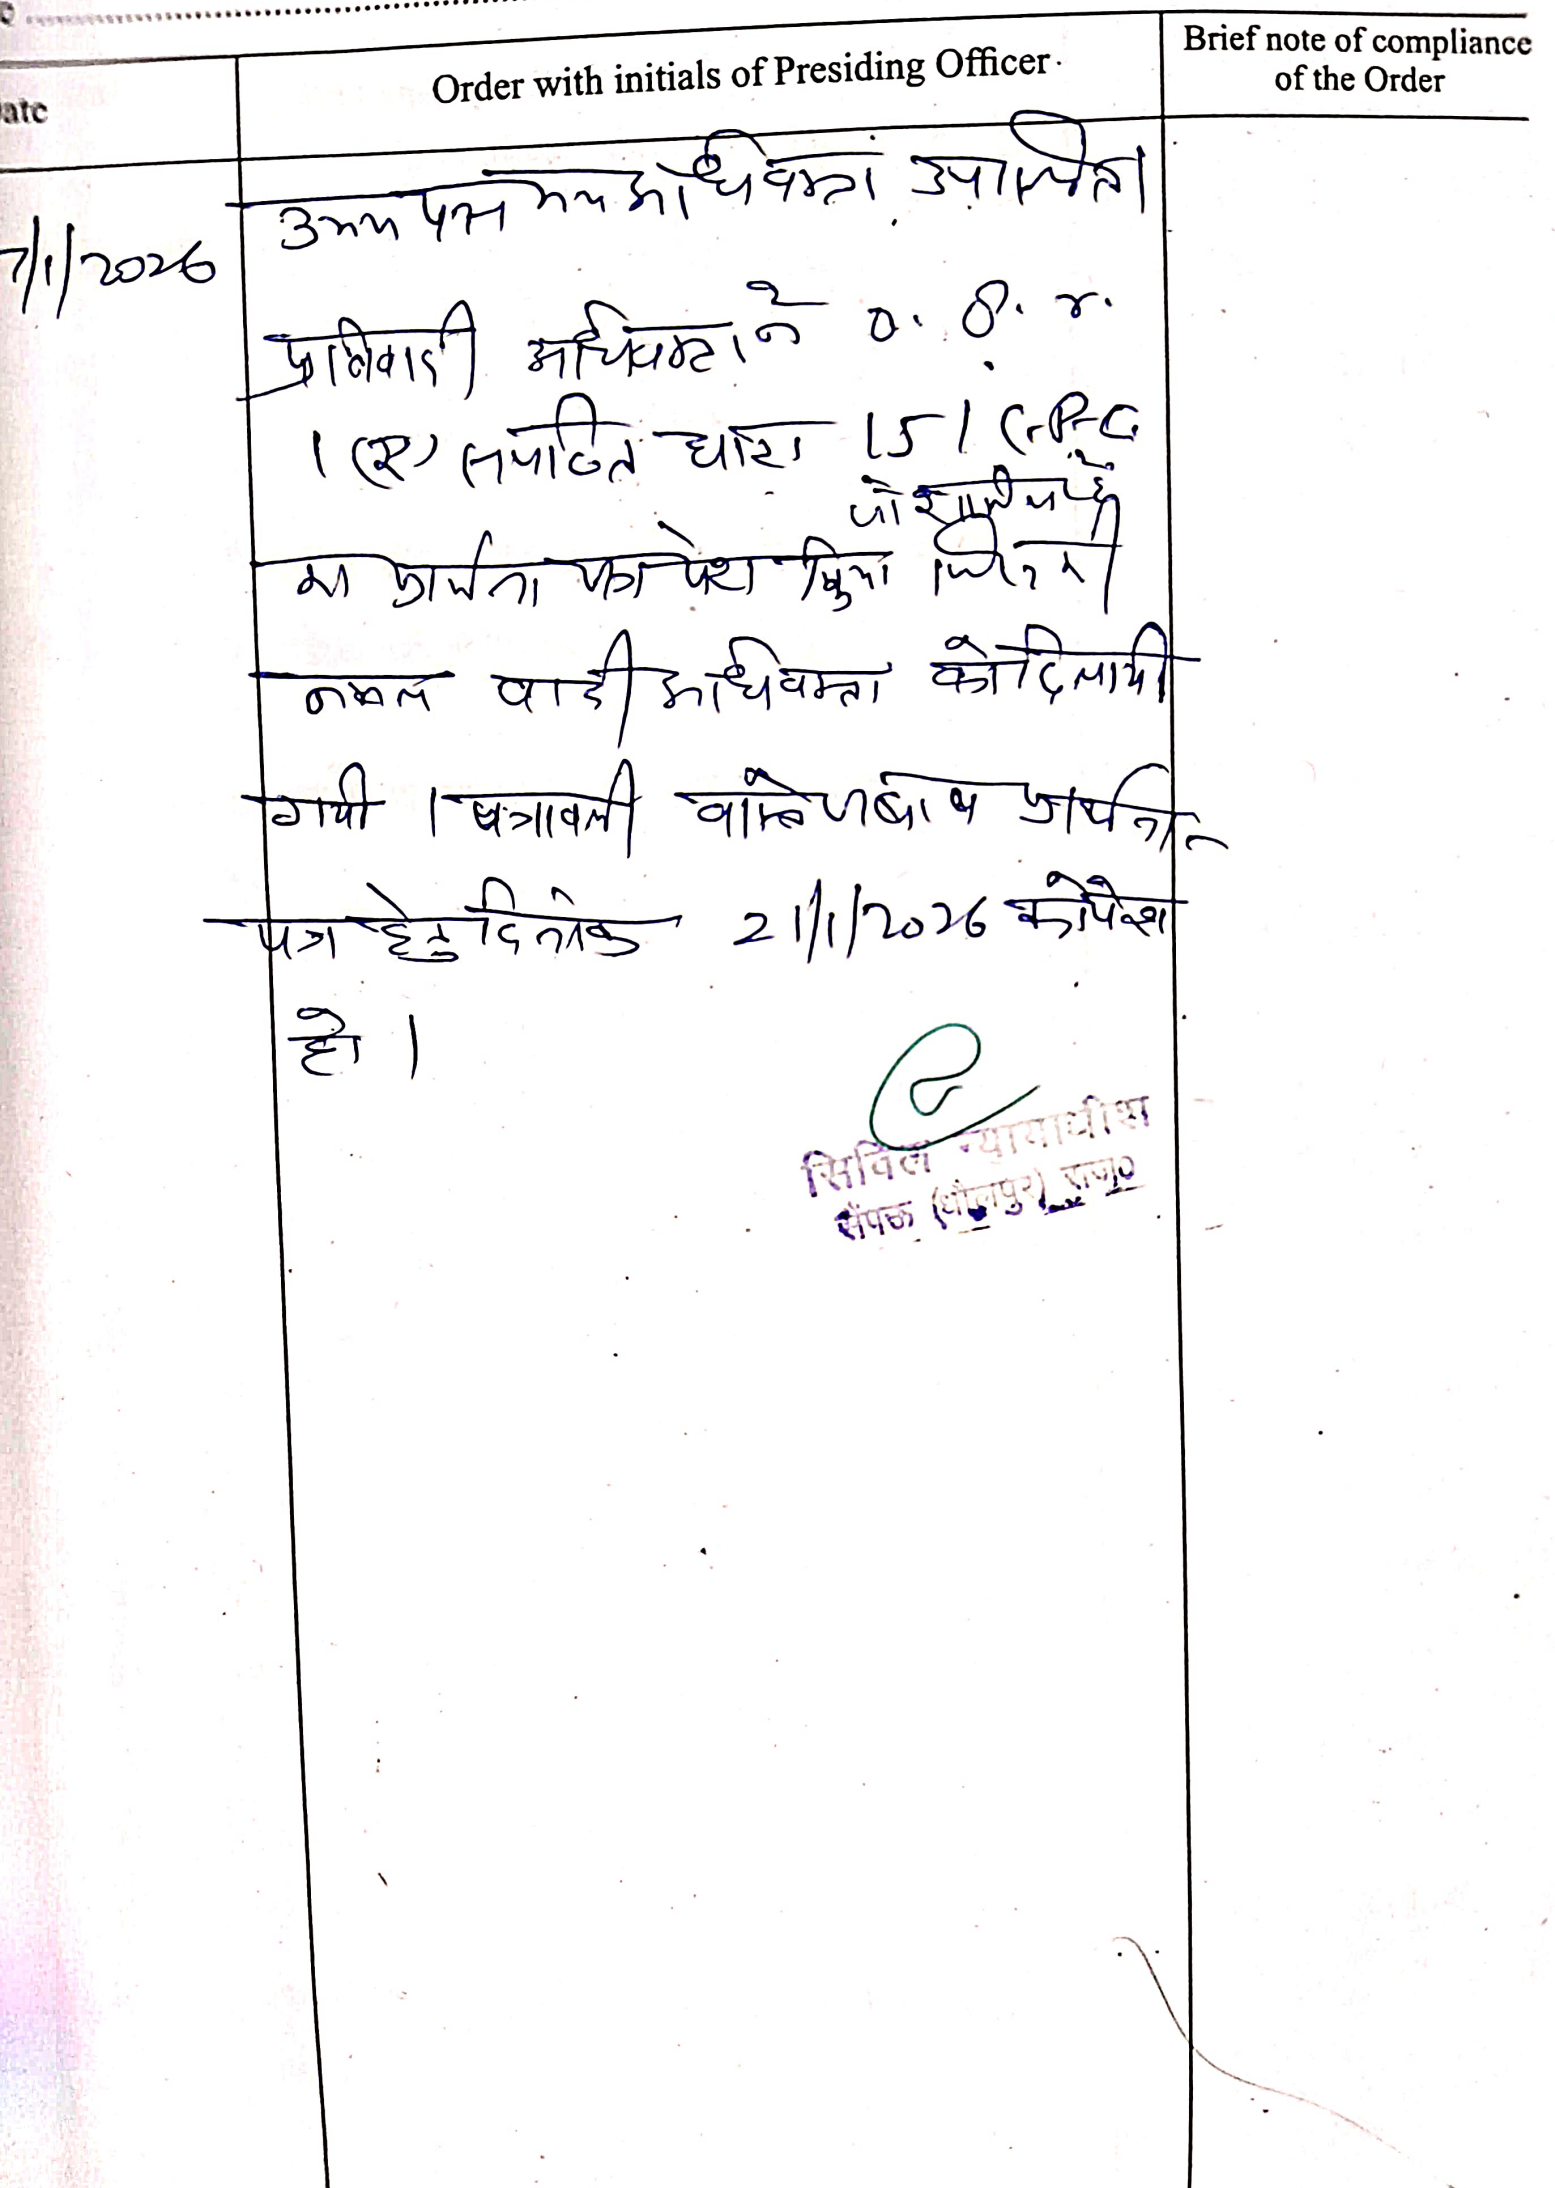 ate
Order with initials of Presiding Officer
Brief note of compliance
of the Order
7/1/2026
उभय पक्ष मय अधिवक्ता उपस्थित।
प्रतिवादी अधिवक्ता ने O. 8. r.
1 (ए) सपठित धारा 151 C.P.C
जो शामिल है
का प्रार्थना पत्र पेश किया जिसकी
नकल वादी अधिवक्ता को दिलायी
गयी । पत्रावली वास्ते जबाब प्रार्थना-
पत्र हेतु दिनांक 21/1/2026 को पेश
हो ।
सिविल न्यायाधीश
सैंपऊ (धौलपुर) राज०